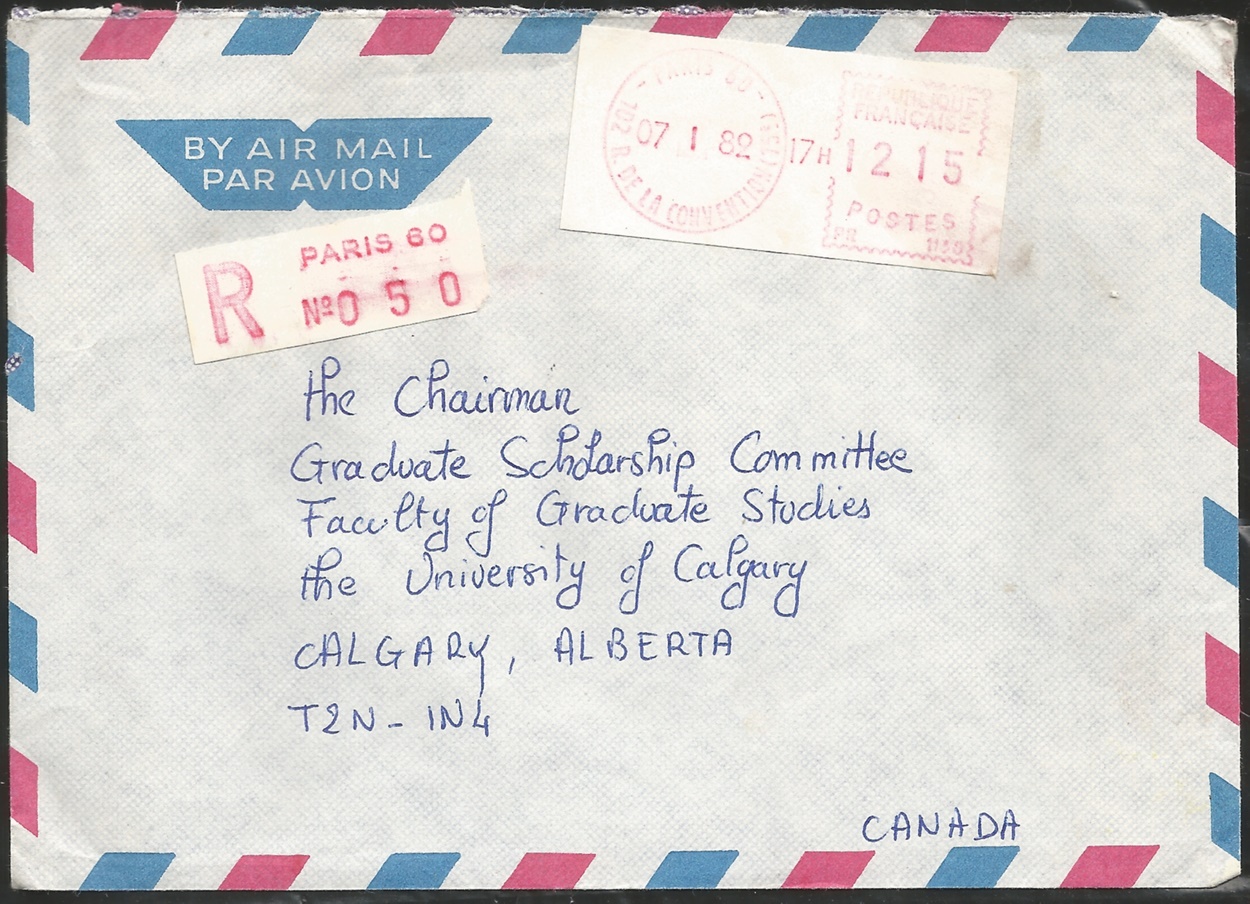 BY AIR MAIL
PAR AVION
PARIS 60
R Nº 0 5 0
- PARIS 60 -
102 R. DE LA CONVENTION (15E)
07 1 82 17H
REPUBLIQUE
FRANÇAISE
1215
POSTES
the Chairman
Graduate Scholarship Committee
Faculty of Graduate Studies
the University of Calgary
CALGARY, ALBERTA
T2N - 1N4
CANADA